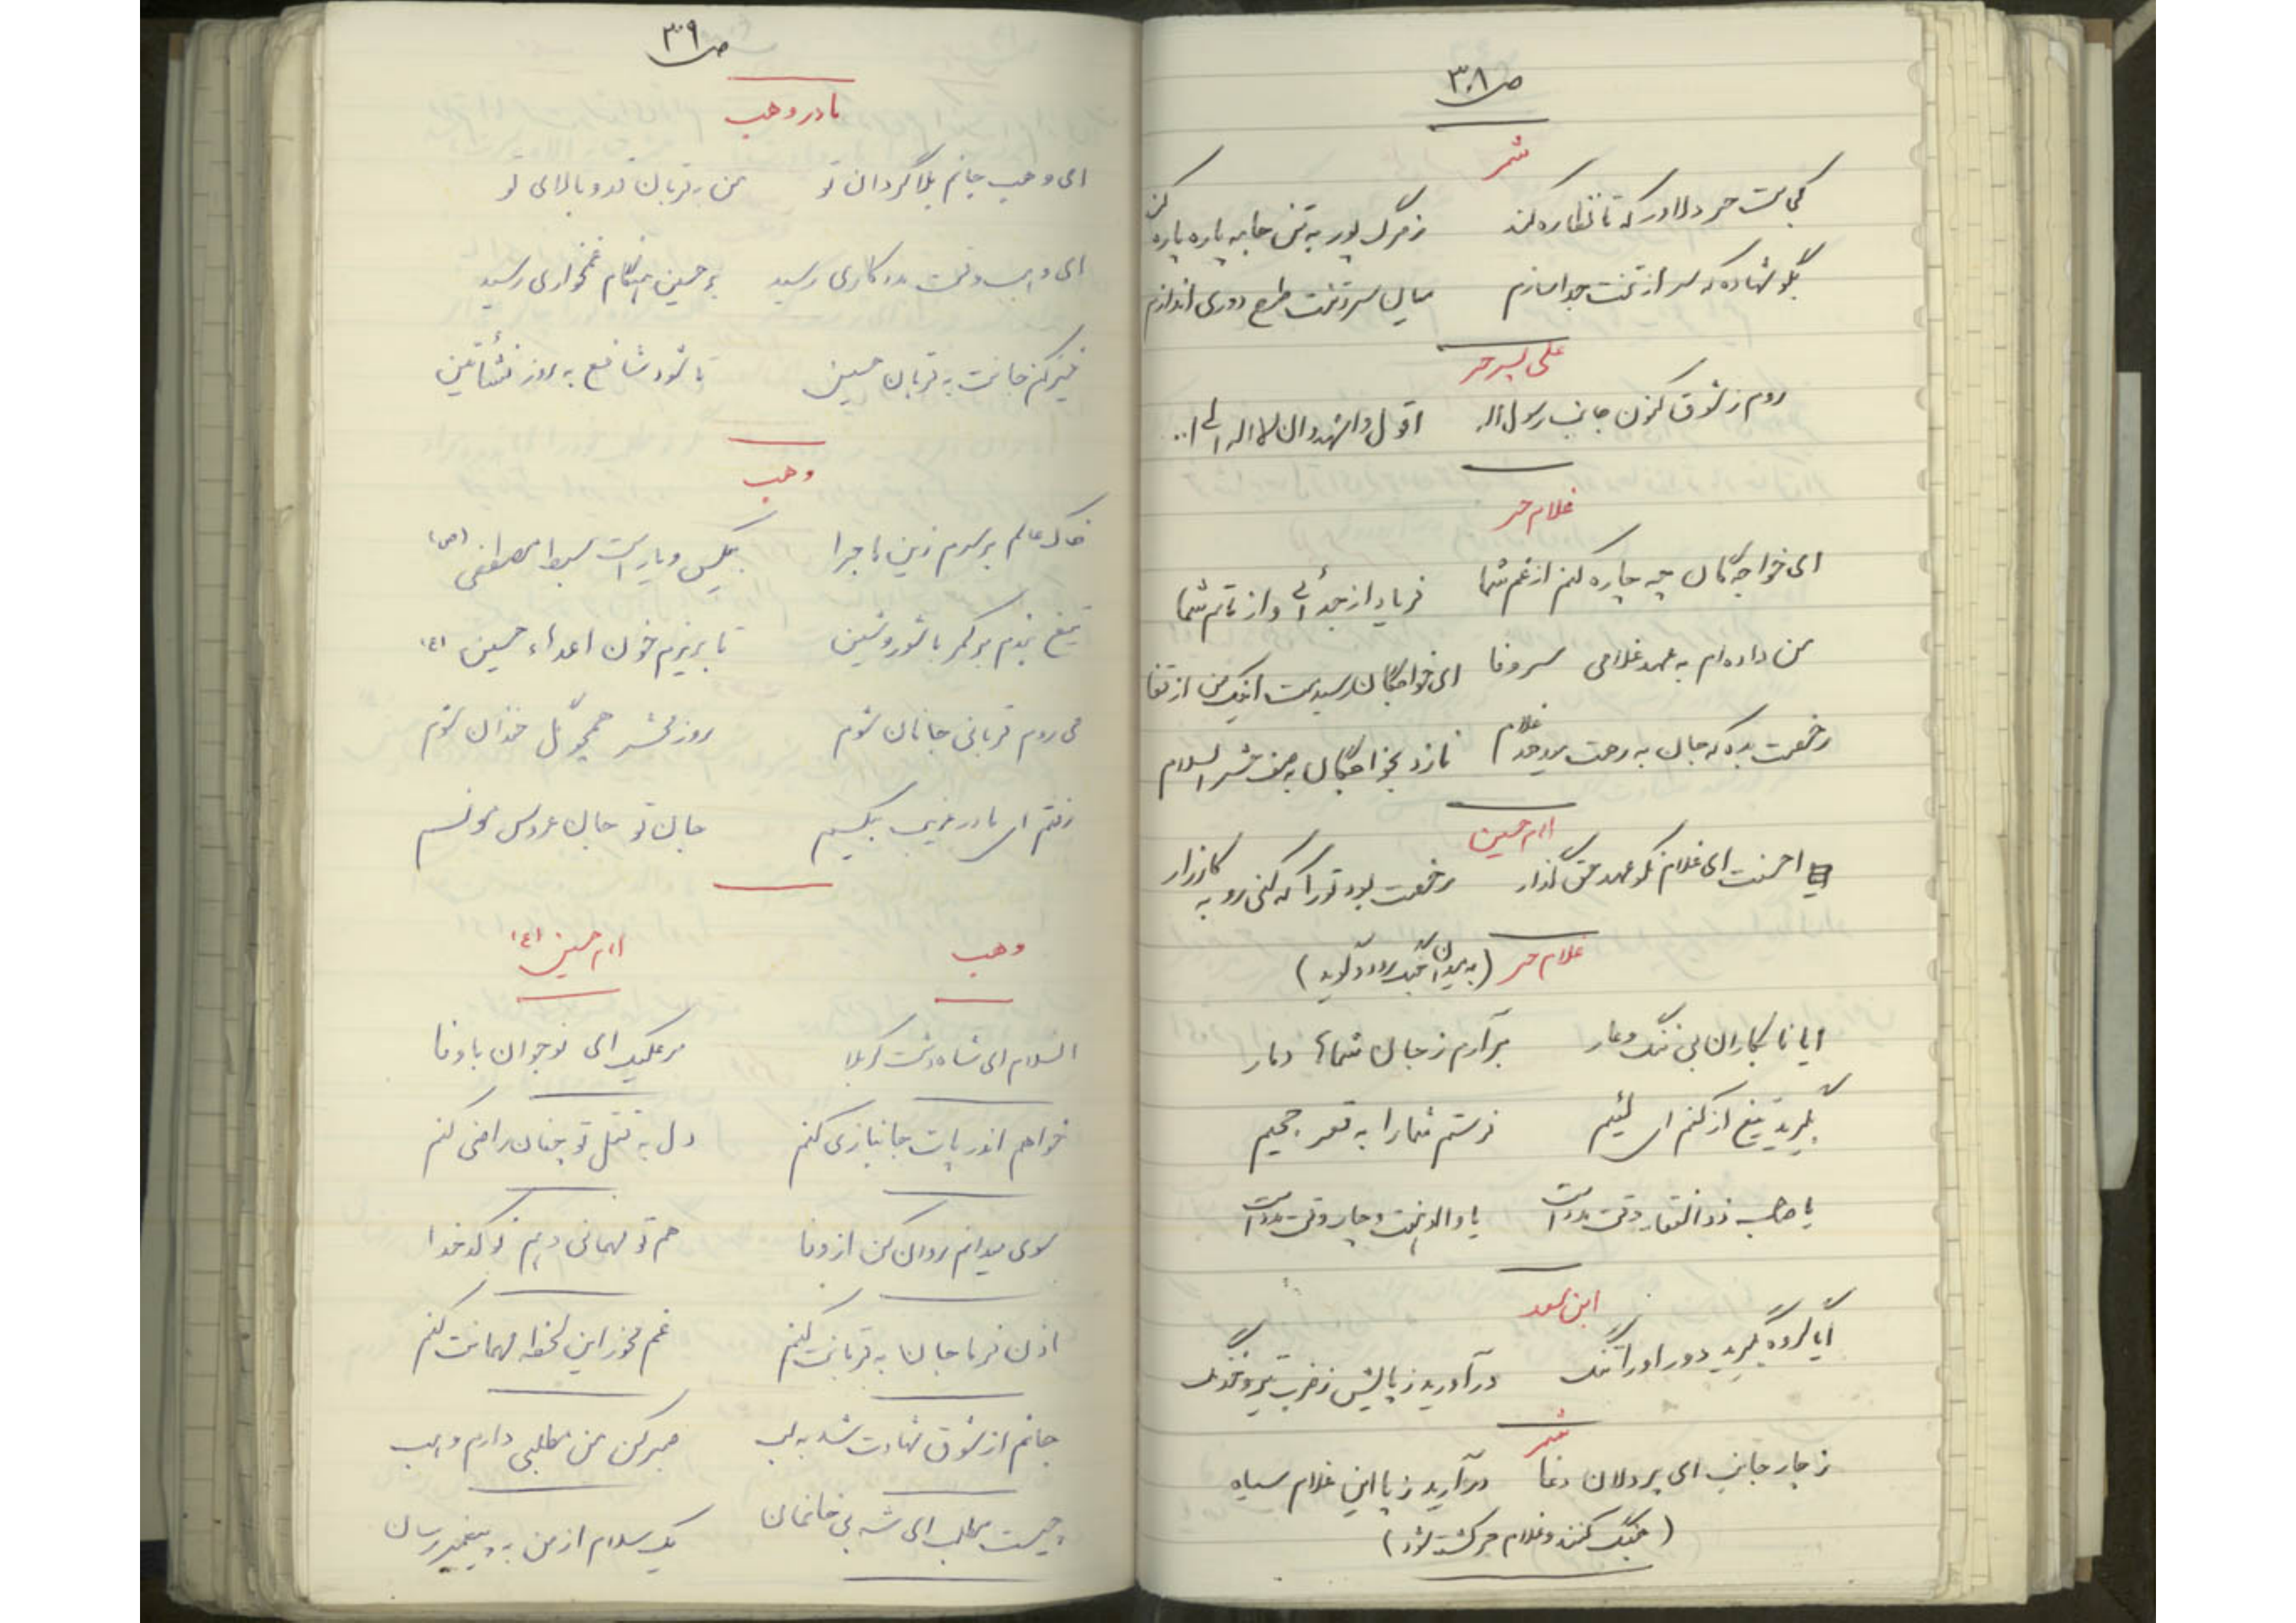 ص ۳۰۸
شمر
کجاست حر دلاور که تا نظاره کند ز مرگ پور به تن جامه پاره پاره کند
بگو شهاده که سر از تنت جدا سازم میان سر و تنت طرح دوری اندازم
علی پسر حر
روم ز شوق کنون جانب رسول اله اقول و اشهد و ان لا اله الی ا..
غلام حر
ای خواجه گان چه چاره کنم از غم شما فریاد از جدائی و از ماتم شما
من داده ام به عهد غلامی سر وفا ای خواجگان رسیدمت اینک من از قفا
رخصت بده که جان به رهت غلام نازد بخواجگان به صف حشر السلام
امام حسین
احسنت ای غلام نکو عهد حق گذار رخصت بود تو را که کنی رو به کارزار
غلام حر (به میدان جنگ رود و گوید)
ایا نابکاران بی ننگ و عار برآرم ز جان شماها دمار
بگیرید تیغ از کفم ای لئیم فرستم شما را به قعر جحیم
یا صاحب ذوالفقار وقت مدد است یا والد هشت و چار وقت مدد است
ابن سعد
آیا گروه بگیرید دور او را تنگ درآورید ز پایش ز ضرب تیر و خدنگ
شمر
ز چار جانب ای پر دلان دغا درآرید ز پا این غلام سیاه
(جنگ کنند و غلام حر کشته شود)
ص ۳۰۹
مادر وهب
ای وهب جانم بلا گردان تو من به قربان قد و بالای تو
ای وهب وقت مددکاری رسید بر حسین هنگام غمخواری رسید
خیز کن جانت به قربان حسین تا شود شافع به روز نشأتین
وهب
خاک عالم بر سرم زین ماجرا بیکس و یار است سبط مصطفی (ص)
تیغ بندم بر کمر با شور و شین تا بریزم خون اعداء حسین (ع)
می روم قربانی جانان شوم روز محشر همچو گل خندان شوم
رفتم ای مادر غریب بیکسم جان تو جان عروس نورسم
وهب امام حسین (ع)
السلام ای شاه دشت کربلا مر علیک ای نوجوان باوفا
خواهم اندر پات جانبازی کنم دل به قتل تو چنان راضی کنم
سوی میدانم روان کن از وفا هم تو مهمانی و هم نو کدخدا
اذن فرما جان به قربانت کنم غم مخور این لحظه مهمانت کنم
جانم از شوق شهادت شد به لب صبر کن من مطلبی دارم وهب
چیست مطلب ای شه بی خانمان یک سلام از من به پیغمبر رسان